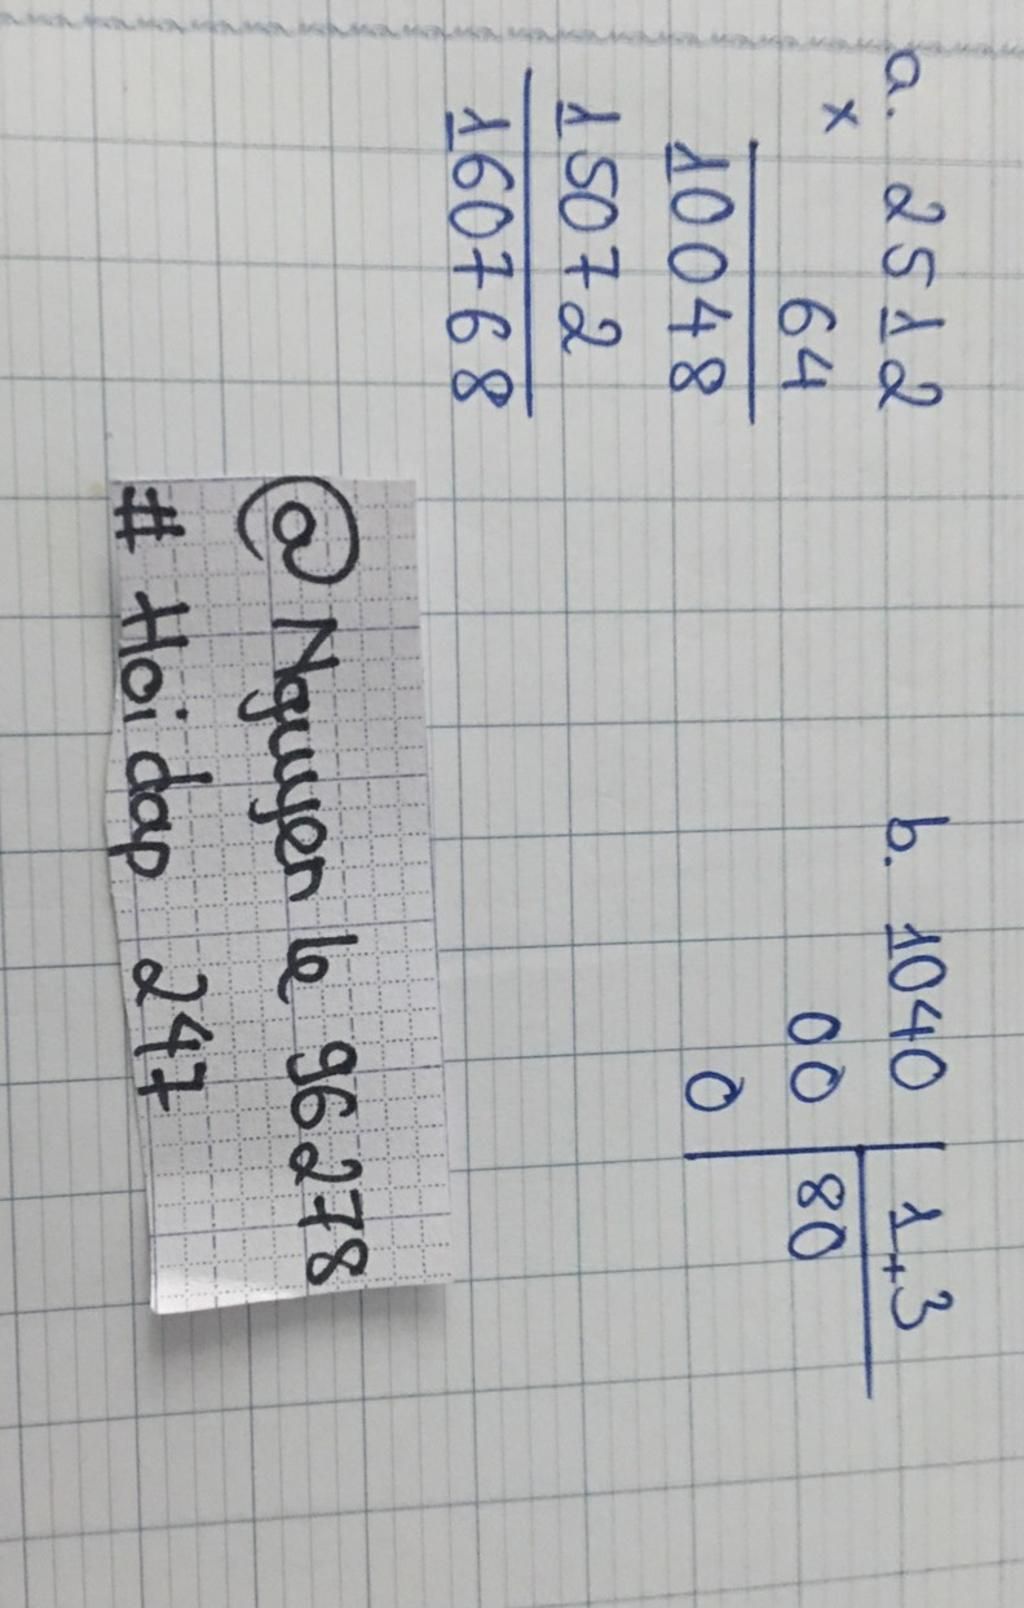 a. 2512
× 64
10048
15072
160768
b. 1040 | 1,3
00 80
0
@ Nguyen le 96278
# Hoi dap 247